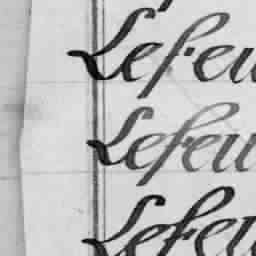 Lefeu
Lefeu
Lefeu